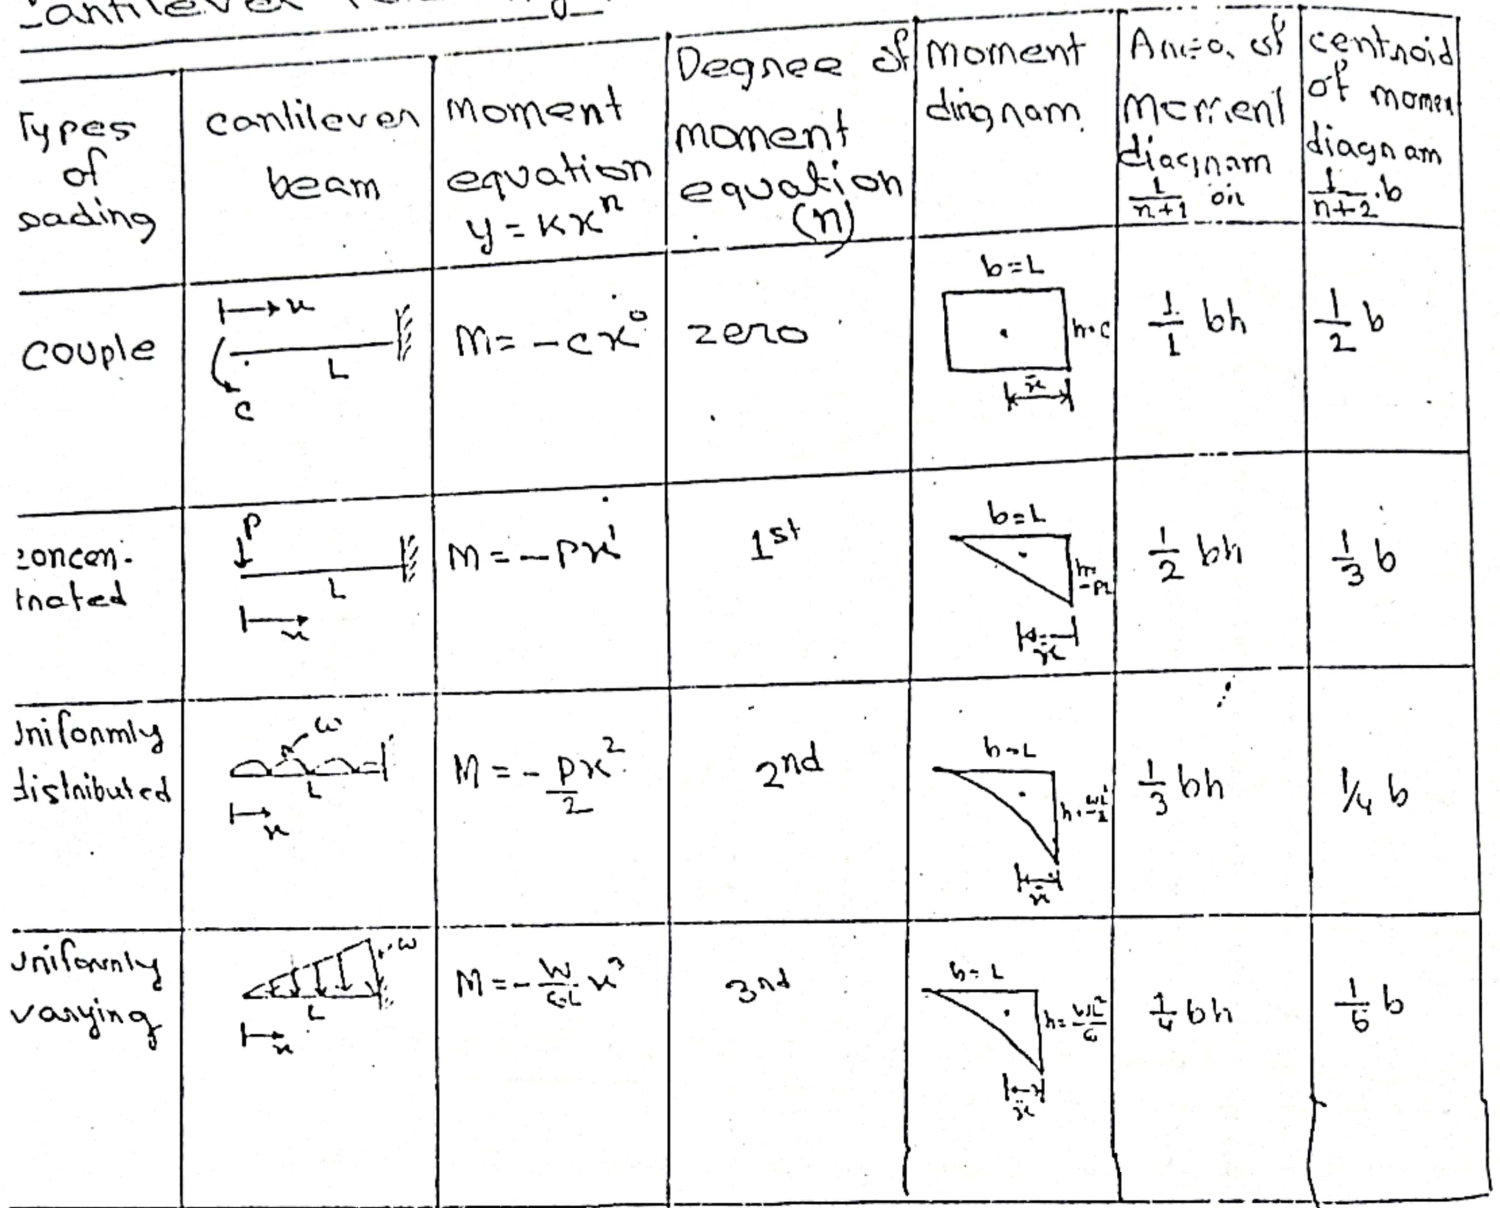 Cantilever
Types
of
oading
cantilever
beam
Moment
equation
y = Kxⁿ
Degree of
moment
equation
(n)
moment
diagnam
Area of
Moment
diagnam
1/n+1 bh
centroid
of momen
diagnam
1/n+2 . b
couple
x
L
C
M = -cx⁰
zero
b=L
h=c
x̄
1/1 bh
1/2 b
concen-
trated
P
L
x
M = -Px¹
1st
b=L
h=
-PL
x̄
1/2 bh
1/3 b
Uniformly
distributed
w
L
x
M = - Px²/2
2nd
b=L
h = wL²/2
x̄
1/3 bh
1/4 b
Uniformly
varying
w
L
x
M = - W/6L x³
3rd
b= L
h= WL²/6
x̄
1/4 bh
1/5 b